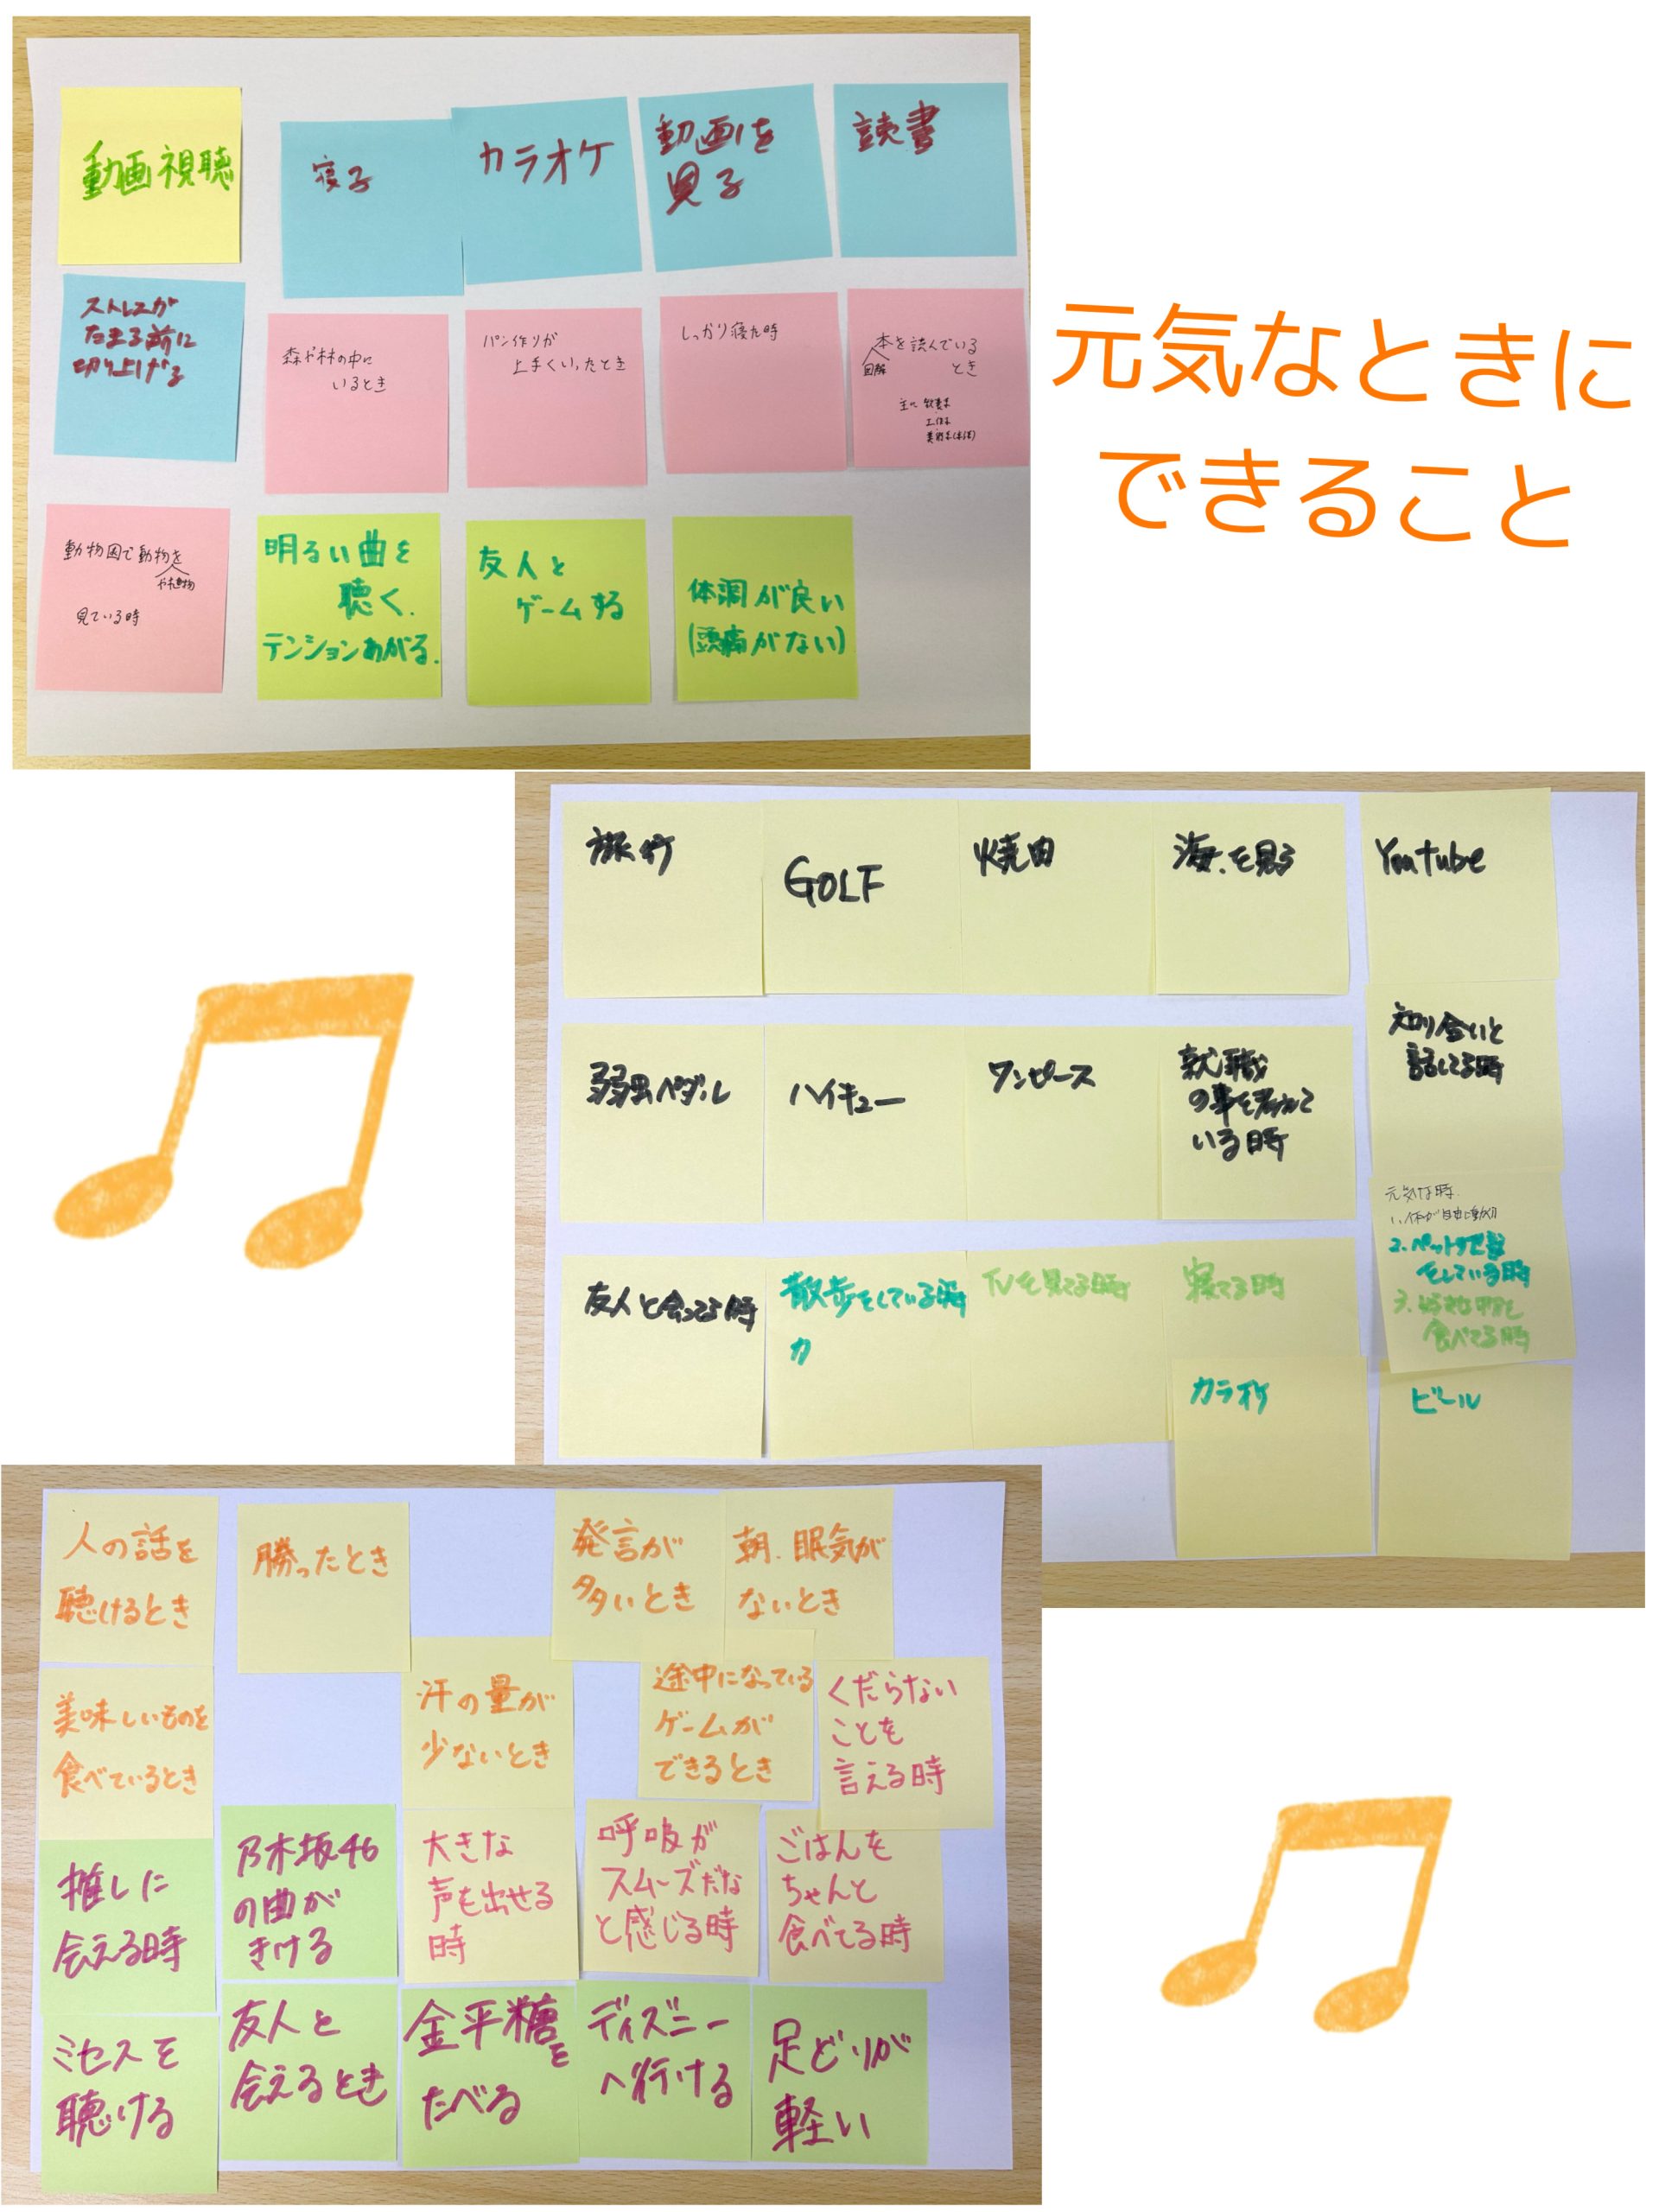 元気なときに
できること
動画視聴
寝る
カラオケ
動画を
見る
読書
ストレスが
たまる前に
切り上げる
森や林の中に
いるとき
パン作りが
上手くいったとき
しっかり寝た時
図解
本を読んでいる
とき
主に
工作本
動物園で動物を
や植物
見ている時
明るい曲を
聴く.
テンションあがる.
友人と
ゲームする
体調が良い
(頭痛がない)
旅行
GOLF
焼肉
海を見る
Youtube
弱虫ペダル
ハイキュー
ワンピース
就職
の事を考えて
いる時
知り合いと
話してる時
友人と会ってる時
散歩をしている時
カ
TVを見てる時
寝てる時
元気な時
1. 体が自由に動く
2. ペットの世話
をしている時
3. 好きな物を
食べてる時
カラオケ
ビール
人の話を
聴けるとき
勝ったとき
発言が
多いとき
朝、眠気が
ないとき
美味しいものを
食べているとき
汗の量が
少ないとき
途中になっている
ゲームが
できるとき
くだらない
ことを
言える時
推しに
会える時
乃木坂46
の曲が
きける
大きな
声を出せる
時
呼吸が
スムーズだな
と感じる時
ごはんを
ちゃんと
食べてる時
ミセスを
聴ける
友人と
会えるとき
金平糖を
たべる
ディズニー
へ行ける
足どりが
軽い